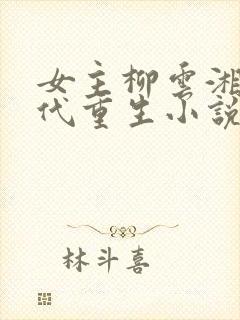 女主柳雲湘
代重生小說
林斗喜